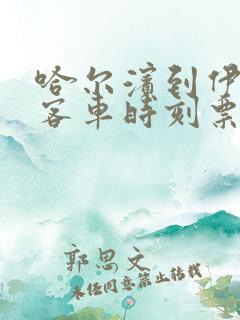 哈尔滨到伊
客车时刻票
郭思文
未经同意禁止转载